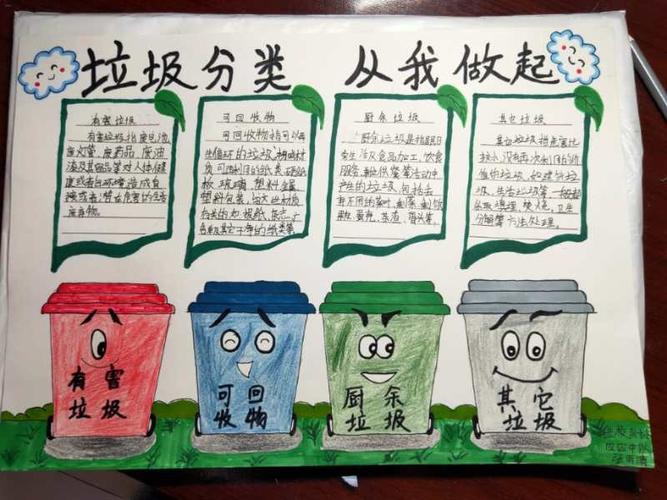 垃圾分类 从我做起
有害垃圾
有害垃圾指废电池
废灯管、废药品、废油
漆及其容器等对人体健
康或者自然环境造成直
接或者潜在危害的生活
废弃物。
可回收物
可回收物指可以再
生循环的垃圾。
板 玻璃 塑料 金属
塑料包装
有关的如 报纸、杂志、广
厨余垃圾
厨余垃圾是指居民日
常生活及食品加工、饮食
服务、单位供餐等活动中
产生的垃圾,包括丢
弃不用的菜叶、剩菜、剩饭
果皮、蛋壳、茶渣、骨头等。
其它垃圾
其它垃圾指危害比
较小,没有再次利用的价
值的垃圾,如建筑垃
圾,生活垃圾等,一般都
采取填埋、焚烧、卫生
分解等方法处理。
有害
垃圾
可回
收物
厨余
垃圾
其它
垃圾